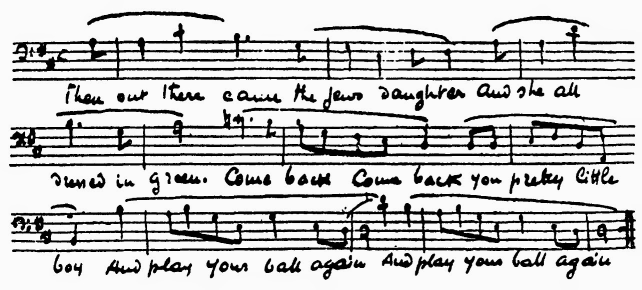 Then out there came the Jews daughter and she all
dressed in green. Come back Come back you pretty little
boy And play your ball again And play your ball again